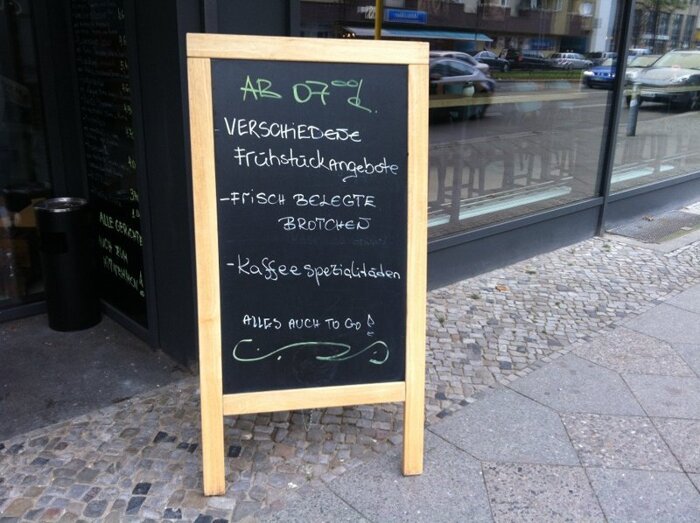 AB 07⁰⁰h.
VERSCHIEDENE
Frühstückangebote
-FRISCH BELEGTE
BROTCHEN
-Kaffee spezialitäden
ALLES AUCH TO GO!
ALLE GERICHTE
AUCH ZUM
MITNEHMEN!